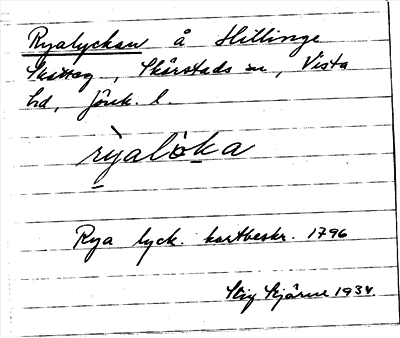 Ryalyckan å Hillinge
Skatteg., Skärstads sn, Vista
hd, Jönk. l.
ryalöka
Rya lyck. kartbeskr. 1796
Stig Bjärne 1934.